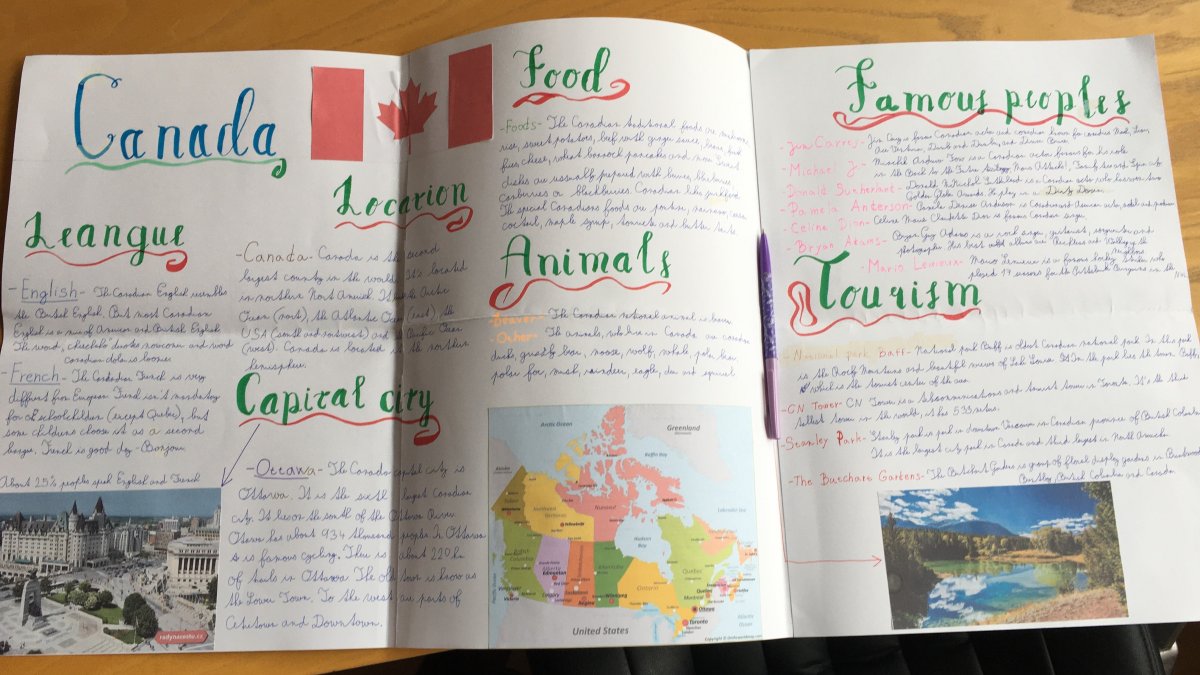 Canada
Leangue
- English - The Canadian English resembles
the British English. But most Canadian
English is a mix of American and British English
The word, chocolate
- French - The Canadian French is very
different from European French isn't mandatory
for schoolchildren (except Quebec), but
some childrens choose it as a second
French is good day - Bonjour
About 25% people speak English and French
radynacestu.cz
Locarion
- Canada - Canada is the second
largest country in the world. It's located
in northern Nort America. It
Ocean (nort), the Atlantic Ocean (east), the
USA (south and northwest) and Pacific Ocean
(west). Canada is located in the northern
hemisphere.
Capiral ciry
- Ottawa - The Canada capital city is
Ottawa. It is the sixth largest Canadian
city. It lies on the south of the Ottawa River.
Ottawa has about 934 thousand people. In Ottawa
is famous cycling. There is about 220 km
of trails in Ottawa. The old town is know as
the Lower Town. To the west are parts of
Centretown and Downtown.
Food
- Foods - The Canadian traditional foods are
rise, sweet potatoes, beef with ginger sauce,
fries, chees, wheat bannock pancakes and more
dishes are usually prepared with
or blackberries. Canadian like
The special Canadians foods are poutine,
coctail, maple syrup, tourtiere and butter tarts.
Animals
- Beaver - The Canadian national animal is beaver
- Other - The animals, who live in Canada are
ducks, grizzly bear, moose, wolf, whale, polar bear,
polar fox, musk, reindeer, eagle, deer and squirrel
Arctic Ocean
Greenland
Baffin Bay
Labrador Sea
Northwest Territories
Nunavut
Yellowknife
Hudson Bay
British Columbia
Edmonton
Calgary
Vancouver
Victoria
Regina
Winnipeg
Ontario
Quebec
Montreal
Ottawa
Toronto
Atlantic Ocean
United States
Famous peoples
- Jim Carrey - Jim Carrey is famous Canadian actor and comedian known for comedies Mask, Liar,
Ace Ventura, Dumb and Dumber
- Michael J. - Michael Andrew Fox is a Canadian actor famous for his role
in the Back to the Future trilogy
- Donald Sutherlant - Donald McNichol Sutherland is a Canadian actor who has won two
Golden Globe Awards. He play in a Dirty Dozen.
- Pamela Anterson - Pamela Denise Anderson is Canadian and American actor, model and producer
- Celine Dion - Celine Marie Claudette Dion is famous Canadian singer.
- Bryan Adams - Bryan Guy Adams is a rock singer, guitarist, songwriter and
photographer. His best albums are Reckless and Waking up the
neighbours
- Mario Lemieux - Mario Lemieux is a famous hockey striker who
played 17 seasons for the Pittsburgh Penguins in the NHL.
Tourism
- Nanional park Baff - National park Baff is oldest Canadian national park. In this park
is the Rocky Mountains and beautiful mirror of Lake Louise. In the park lies the town Baff
which is the tourist center of the area
- CN Tower - CN Tower is a telecommunications and tourist tower in Toronto. It's the third
tallest tower in the world, it has 533 metres.
- Stanley Park - Stanley park is park in downtown Vancouver in Canadian province of British Columbia
It is the largest city park in Canada and third largest in North America
- The Butchart Gardens - The Butchart Gardens is group of floral display gardens in Brentwood
Bay, British Columbia and Canada